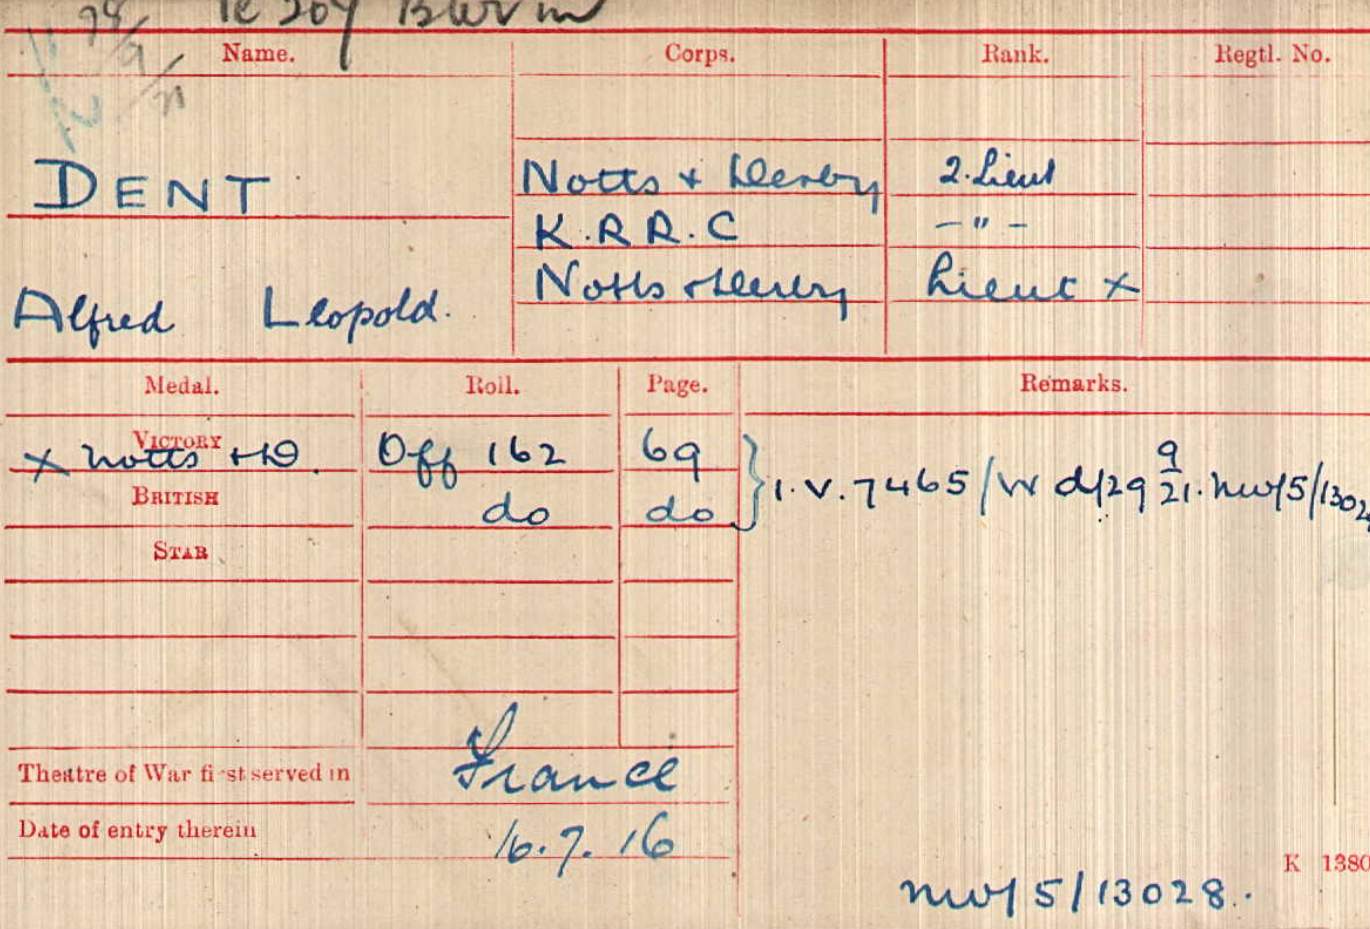 Name. Corps. Rank. Regtl. No.
DENT Notts + Derby 2. Lieut
K.R.R.C - " -
Alfred Leopold. Notts + Derby Lieut x
Medal. Roll. Page. Remarks.
VICTORY
x Notts + D. Off 162 69
BRITISH do do
I.V. 7465/W d/29 9/21. NW/5/1302
STAR
Theatre of War first served in France
Date of entry therein 16.7.16
K 1380
NW/5/13028.